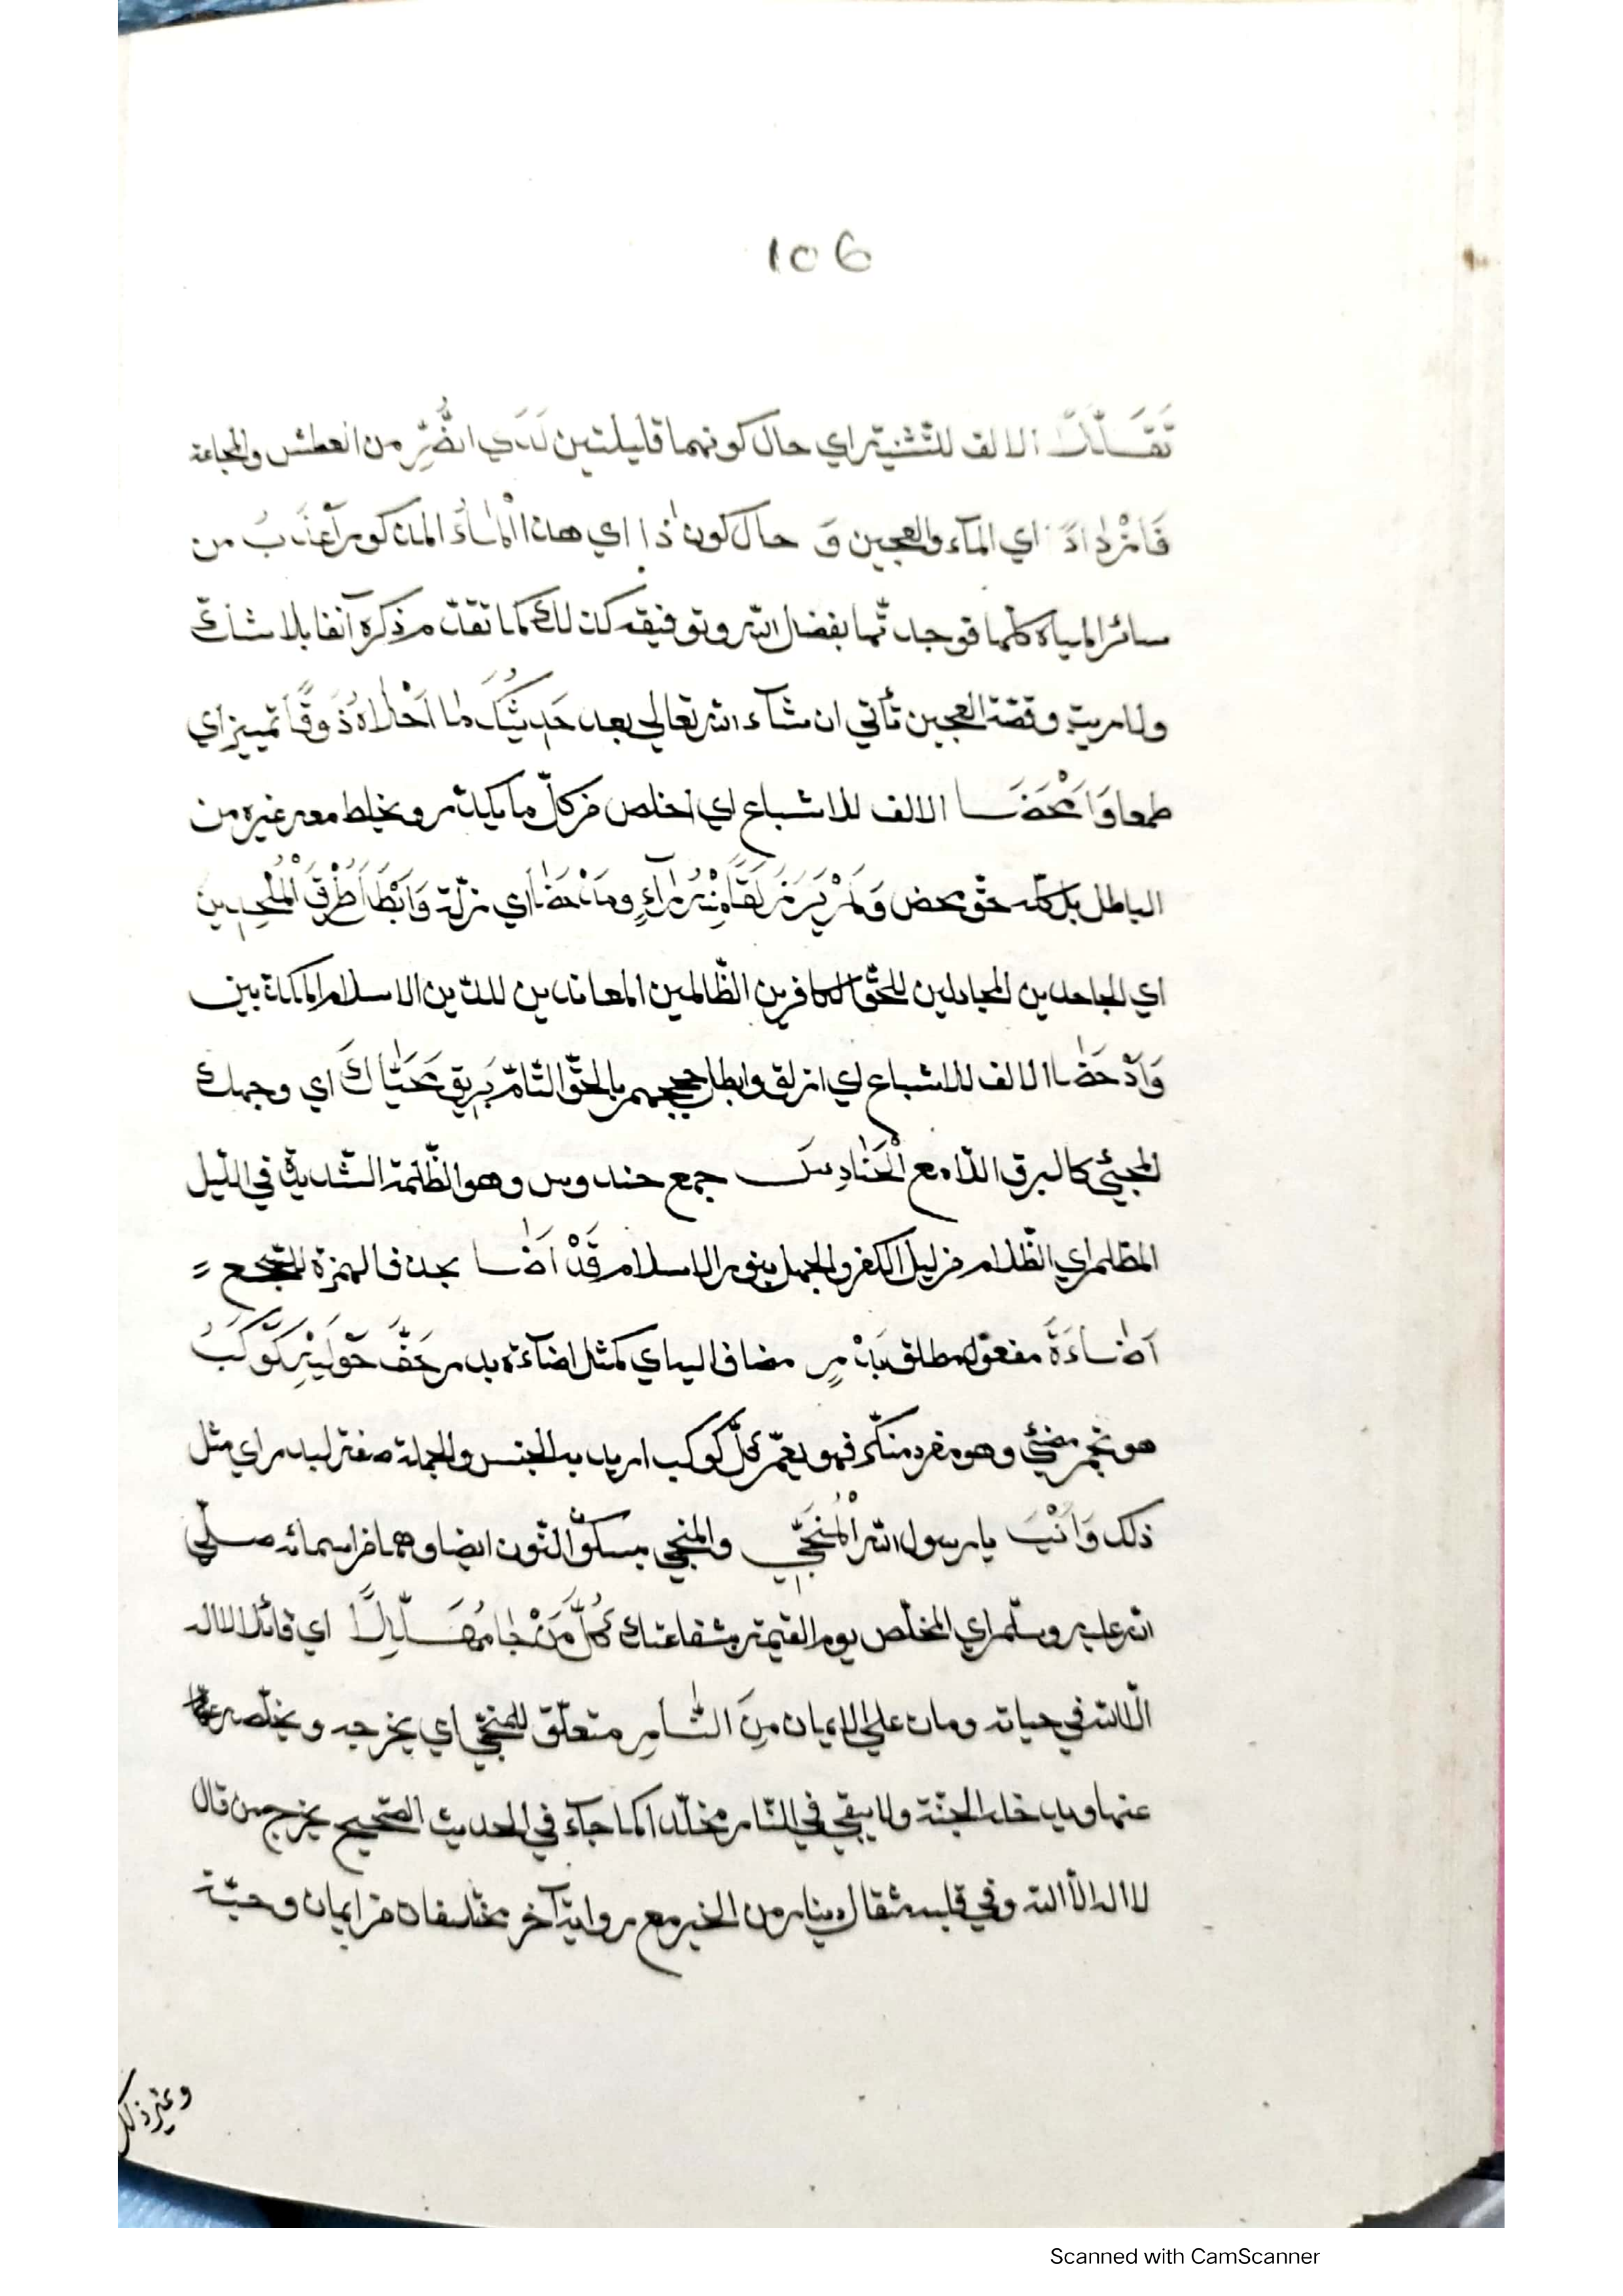 106
تَقَلَّلَا الالف للتّثنية اي حال كونهما قليلتين لَدَي الضُّرِّ من العطش والمجاعة
فَازْدَادَ اي المآء والعجين وَ حال كون ذا اي هذا الْمَاءُ المذكور اَعْذَبُ من
سائر المياه كلّها قوجد تّها بفضل الله وتوفيقه كذلك كما تقدّم ذكره آنفا بلا شكّ
ولا مرية وقصّة العجين تأتي ان شآء الله تعالي بعد حَدِيثُكَ مَا اَحْلَاهُ ذَوْقًا تمييز اي
طعما وَاَمْحَضَا الالف للاشباع اي اخلص من كلّ ما يكدّر ويخلط معه غيره من
الباطل بل كلّه حقّ محض وَلَمْ يَرَ مَزْلَقًا مِنْهُ رَآءٍ وَمَدْحَضًا اي زلّة وَاَبْطَلَ طُرْقَ الْمُلْحِدِين
اي الجاحدين المجادلين للحقّ الكافرين الظّالمين المعاندين للدّين الاسلام المكذّبين
وَاَدْحَضَا الالف للاشباع اي ازلق وابطل حججهم بالحقّ التّامّ بَرِيقُ مُحَيَّاكَ اي وجهك
المجيئ كالبرق اللّامع الْحَنَادِسَ جمع حندوس وهو الظّلمة الشّديدة في اللّيل
المظلم اي الظّلام من ليل الكفر والجهل بنور الاسلام قَدْ اَضَا بحذف الهمزة للسّجع =
اَضَاءَةَ مفعول مطلق بَدْرٍ مضاف اليه اي كمثل اضآءة بدر حَفَّ حَوْلَيْهِ كَوْكَبُ
هو نجم مضئ وهو مفرد منكّر فهو يعمّ كلّ كوكب اريد به الجنس والجملة صفة لبدر اي مثل
ذلك وَاَنْتَ يا رسول الله الْمُنَجِّي والمنجي بسكون النّون ايضا وهما من اسمائه صلّي
الله عليه وسلّم اي المخلّص يوم القيمة بشفاعتك كُلَّ مَنْ جَا مُهَلِّلًا اي قائلا لا اله
الّا الله في حياته ومات علي الايمان مِنَ النَّارِ متعلّق للمنجّي اي يخرجه ويخلّصه
عنها ويدخله الجنّة ولا يبقي في النّار مخلّدا كما جآء في الحديث الصّحيح يخرج من قال
لا اله الّا الله وفي قلبه مثقال دينار من الخير مع رواية آخر مختلفات من ايمان وحبّة
وغير ذلك
Scanned with CamScanner